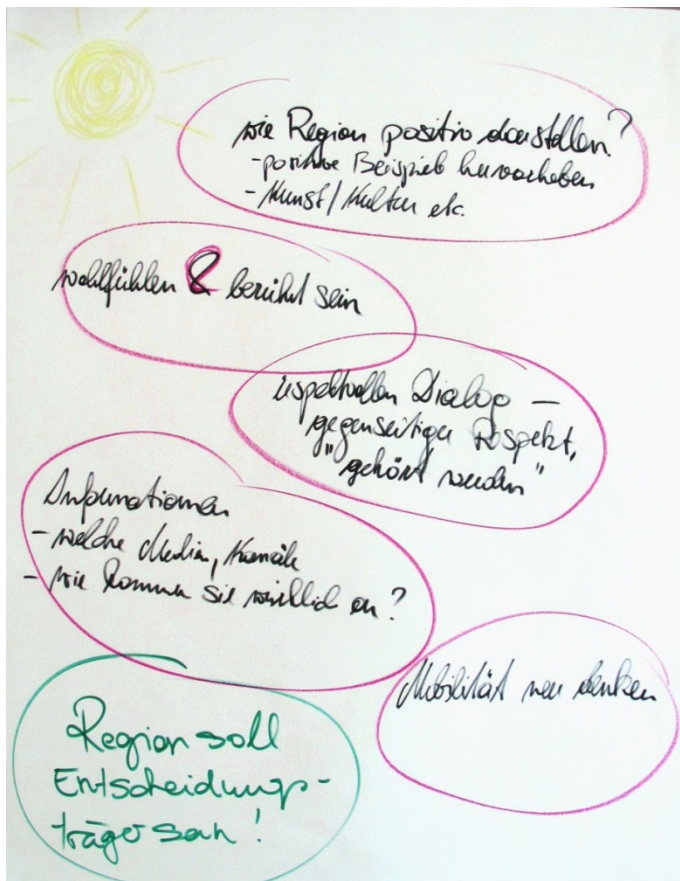 wie Region positiv darstellen?
- positive Beispiele hervorheben
- Kunst / Kultur etc.
wohlfühlen & berührt sein
respektvollen Dialog —
gegenseitiger Respekt,
"gehört werden"
Informationen
- welche Medien, Kanäle
- wie kommen sie wirklich an?
Mobilität neu denken
Region soll
Entscheidungs-
träger sein!